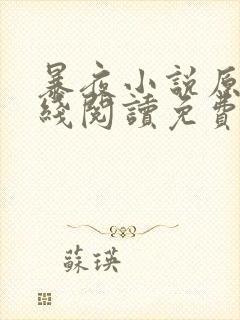 暴夜小說原
綫閱讀免費
蘇瑛